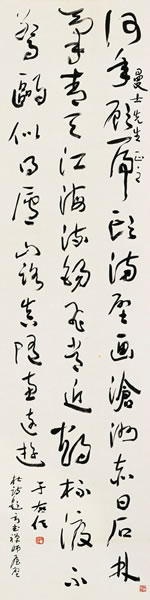 曼士先生正之
何年顧虎頭滿壁画滄洲赤日石林
氣青天江海流錫飛常近鶴杯渡不
驚鷗似得廬山路真隨惠遠遊
于右任
杜詩題玄武禪師屋壁